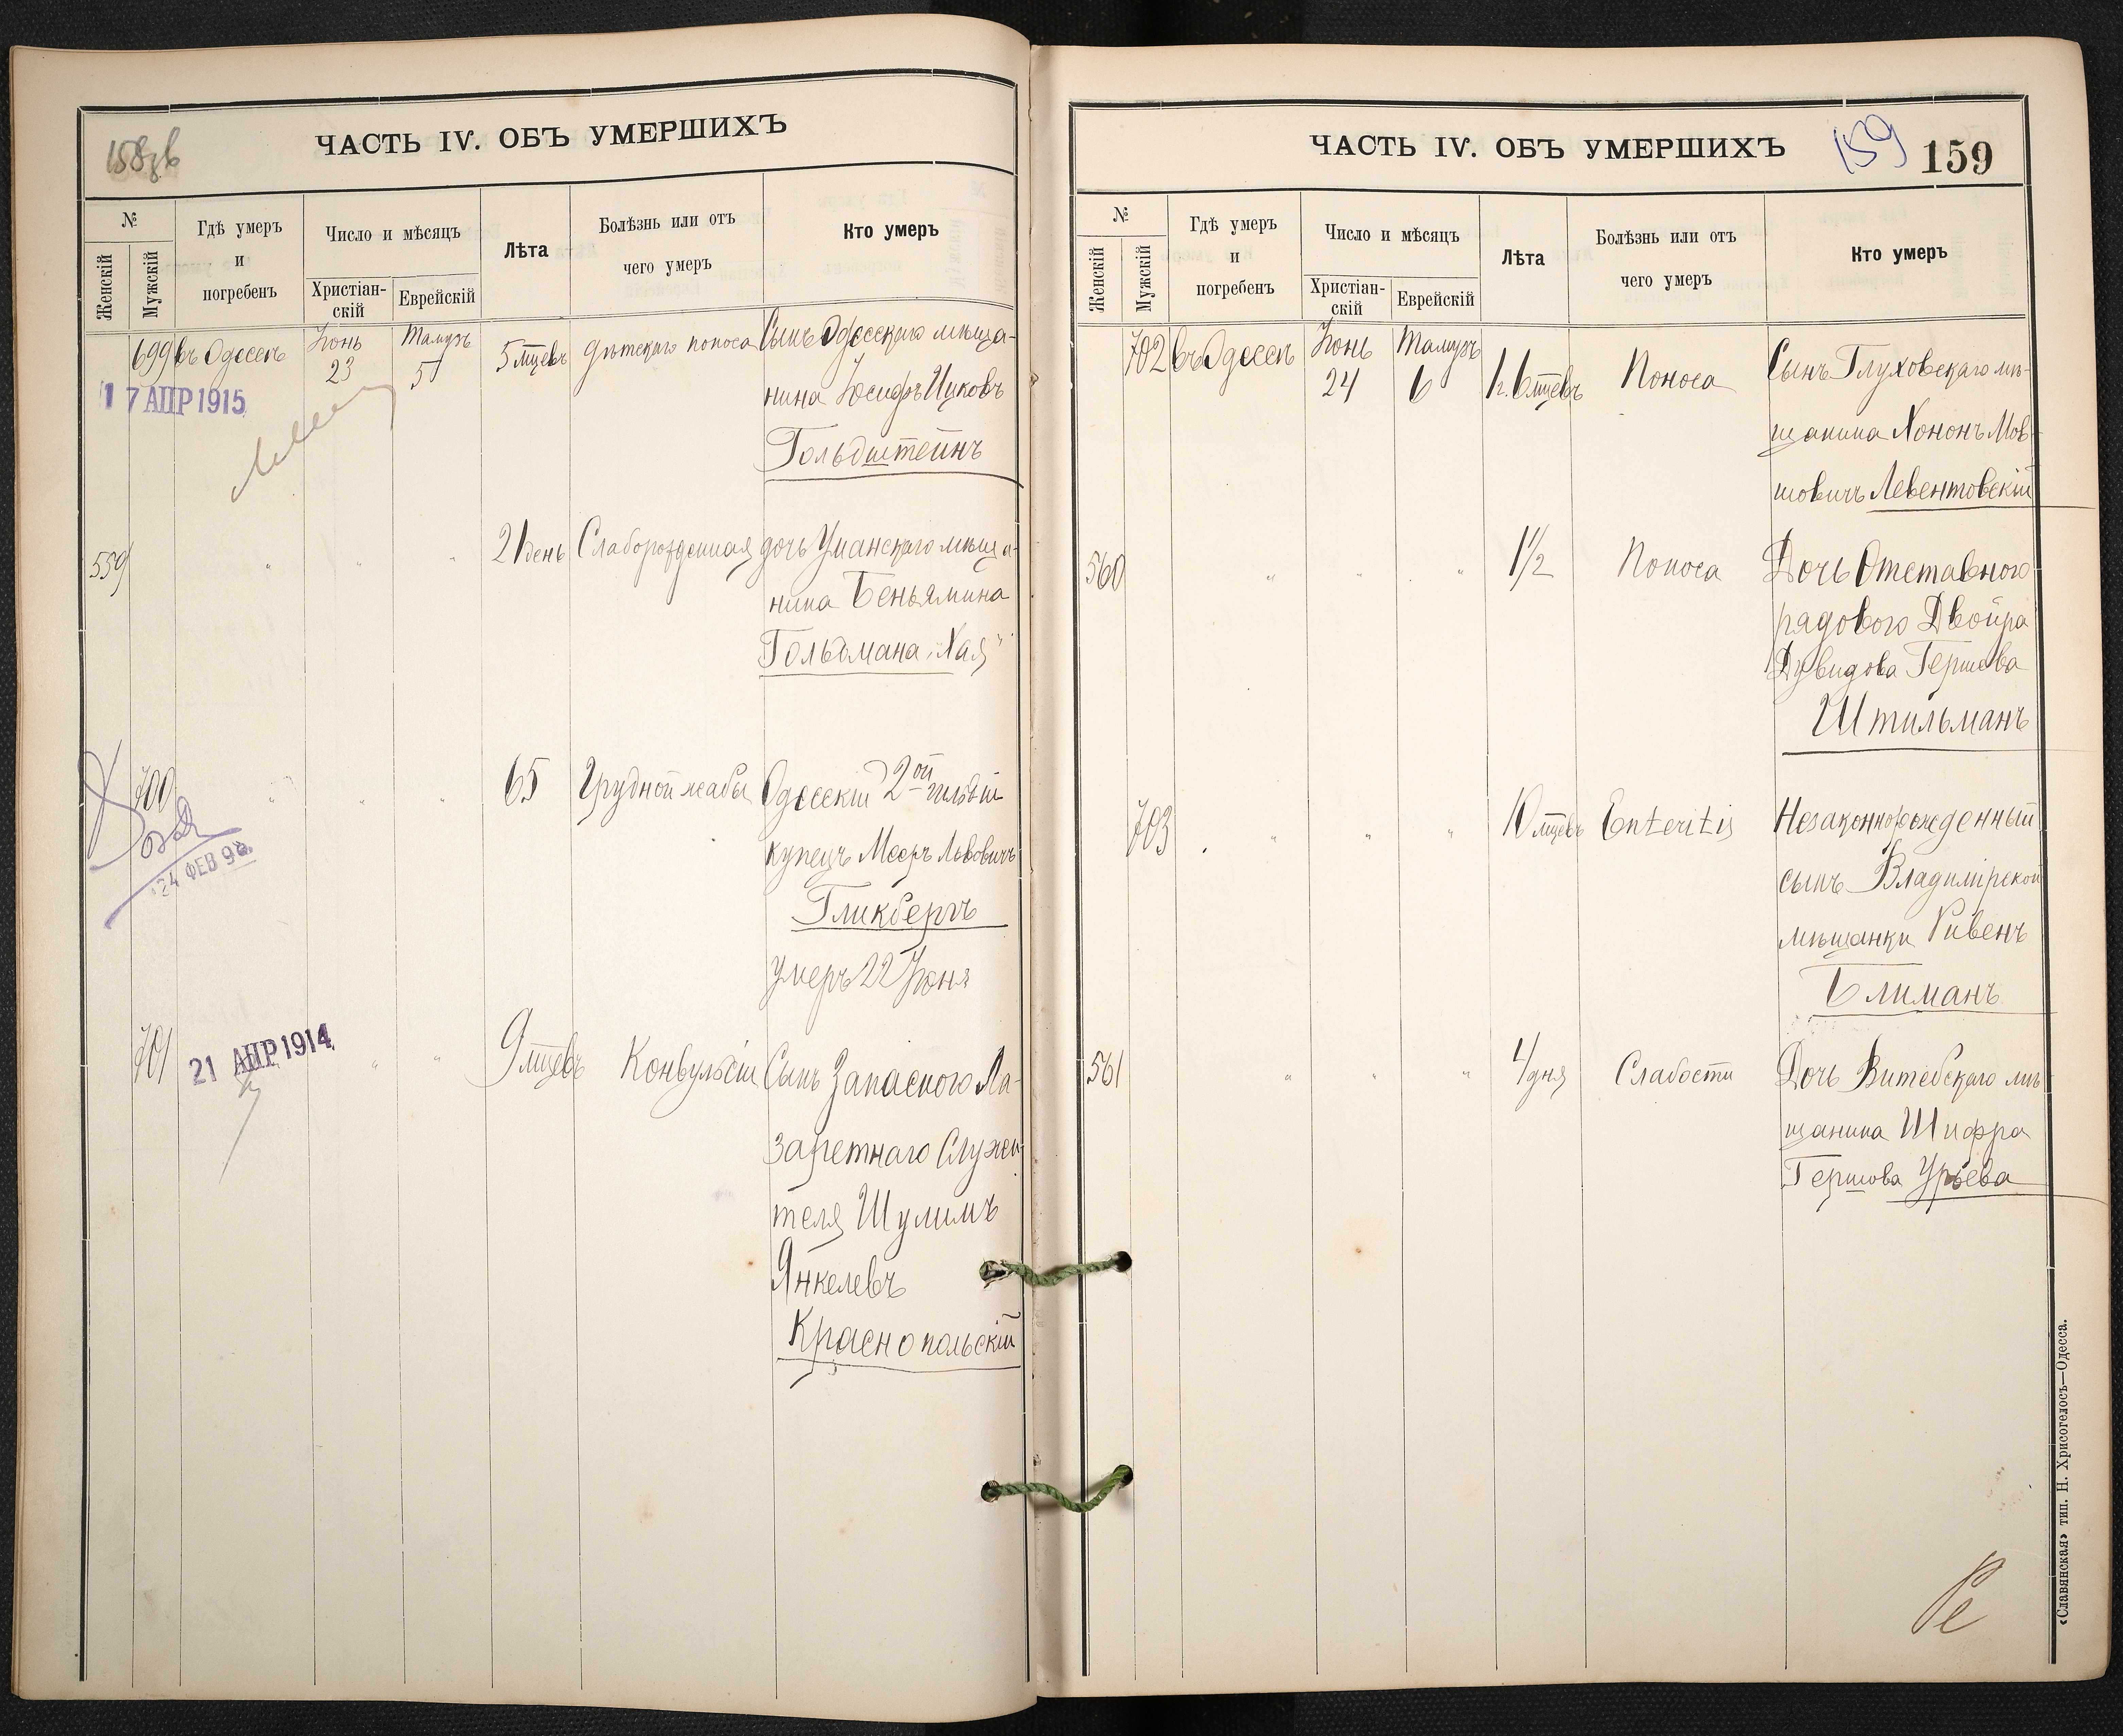 158 об
ЧАСТЬ IV. ОБЪ УМЕРШИХЪ
№
Женскій
Мужскій
Гдѣ умеръ
и
погребенъ
Число и мѣсяцъ
Христіан-
скій
Еврейскій
Лѣта
Болѣзнь или отъ
чего умеръ
Кто умеръ
699 въ Одессѣ Іюнь 23 Тамузъ 5 5 мцевъ Дѣтскаго поноса Сынъ Одесскаго мѣща-
нина Іосифъ Ицковъ
Гольдштейнъ
17 АПР 1915
559 " " " 21 день Слаборожденная дочь Уманскаго мѣща-
нина Беньямина
Гольдмана „Хая"
700 " " " 65 Грудной жабы Одесскій 2ой гильдіи
купецъ Мееръ Львовичъ
Гликбергъ
умеръ 22 Іюня
24 ФЕВ 9
701 " " 9 мцевъ Конвульсіи Сынъ Запасного Ла-
заретнаго Служи-
теля Шулимъ
Янкелевъ
Краснопольскій
21 АПР 1914
ЧАСТЬ IV. ОБЪ УМЕРШИХЪ
159
159
№
Женскій
Мужскій
Гдѣ умеръ
и
погребенъ
Число и мѣсяцъ
Христіан-
скій
Еврейскій
Лѣта
Болѣзнь или отъ
чего умеръ
Кто умеръ
702 въ Одессѣ Іюнь 24 Тамузъ 6 1 г. 6 мцевъ Поноса Сынъ Глуховскаго мѣ-
щанина Хононъ Мов-
шовичъ Левентовскій
560 " " " 1½ Поноса Дочь Отставного
рядового Двойра
Дувидова Гершова
Штильманъ
703 " " " 10 мцевъ Enteritis Незаконнорожденный
сынъ Владимірской
мѣщанки Рувенъ
Блиманъ
561 " " " 4 дня Слабости Дочь Витебскаго мѣ-
щанина Шифра
Гершова Урьева
«Славянская» тип. Н. Хрисогелосъ—Одесса.